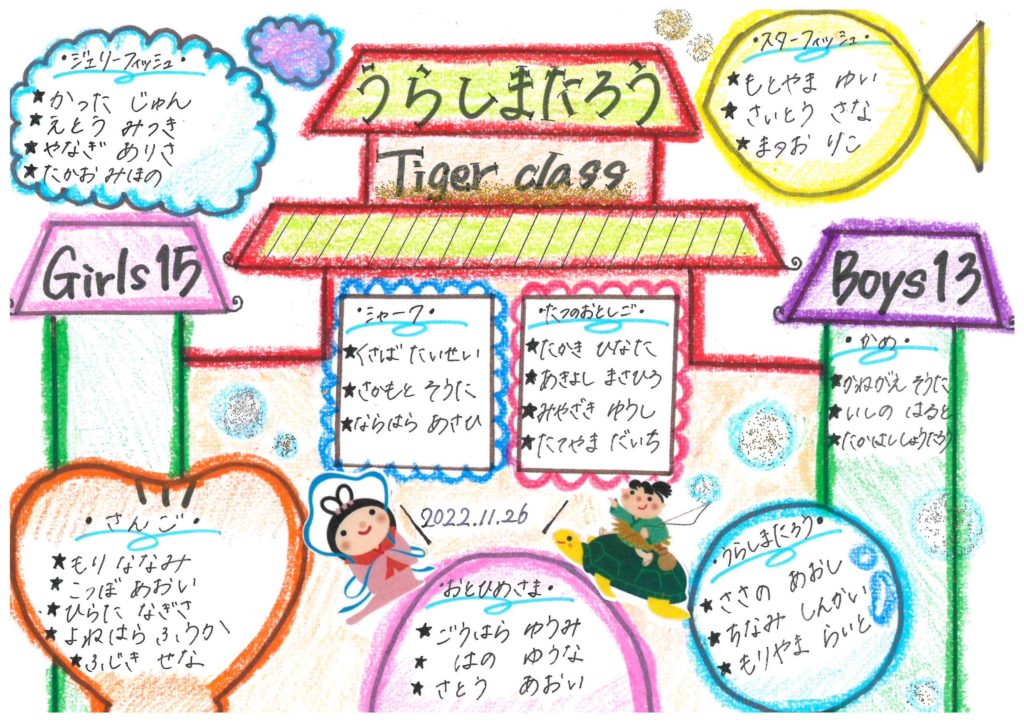 うらしまたろう
Tiger class
・ジェリーフィッシュ・
★かった じゅん
★えとう みつき
★やなぎ ありさ
★たかお みほの
・スターフィッシュ・
★もとやま ゆい
★さいとう さな
★まつお りこ
Girls 15
Boys 13
・シャーク・
★くさば たいせい
★さかもと そうた
★ならはら あさひ
・たつのおとしご・
★たかき ひなた
★あきよし まさひろ
★みやざき ゆうし
★たてやま だいち
・かめ・
★かねがえ そうた
★いしの はると
★たかはし しょうたろう
・さんご・
★もり ななみ
★こっぽ あおい
★ひらた なぎさ
★よねはら ふうか
★ふじき せな
2022.11.26
・おとひめさま・
★ごうはら ゆうみ
★はの ゆうな
★さとう あおい
・うらしまたろう・
★ささの あおし
★ちなみ しんかい
★もりやま らいと